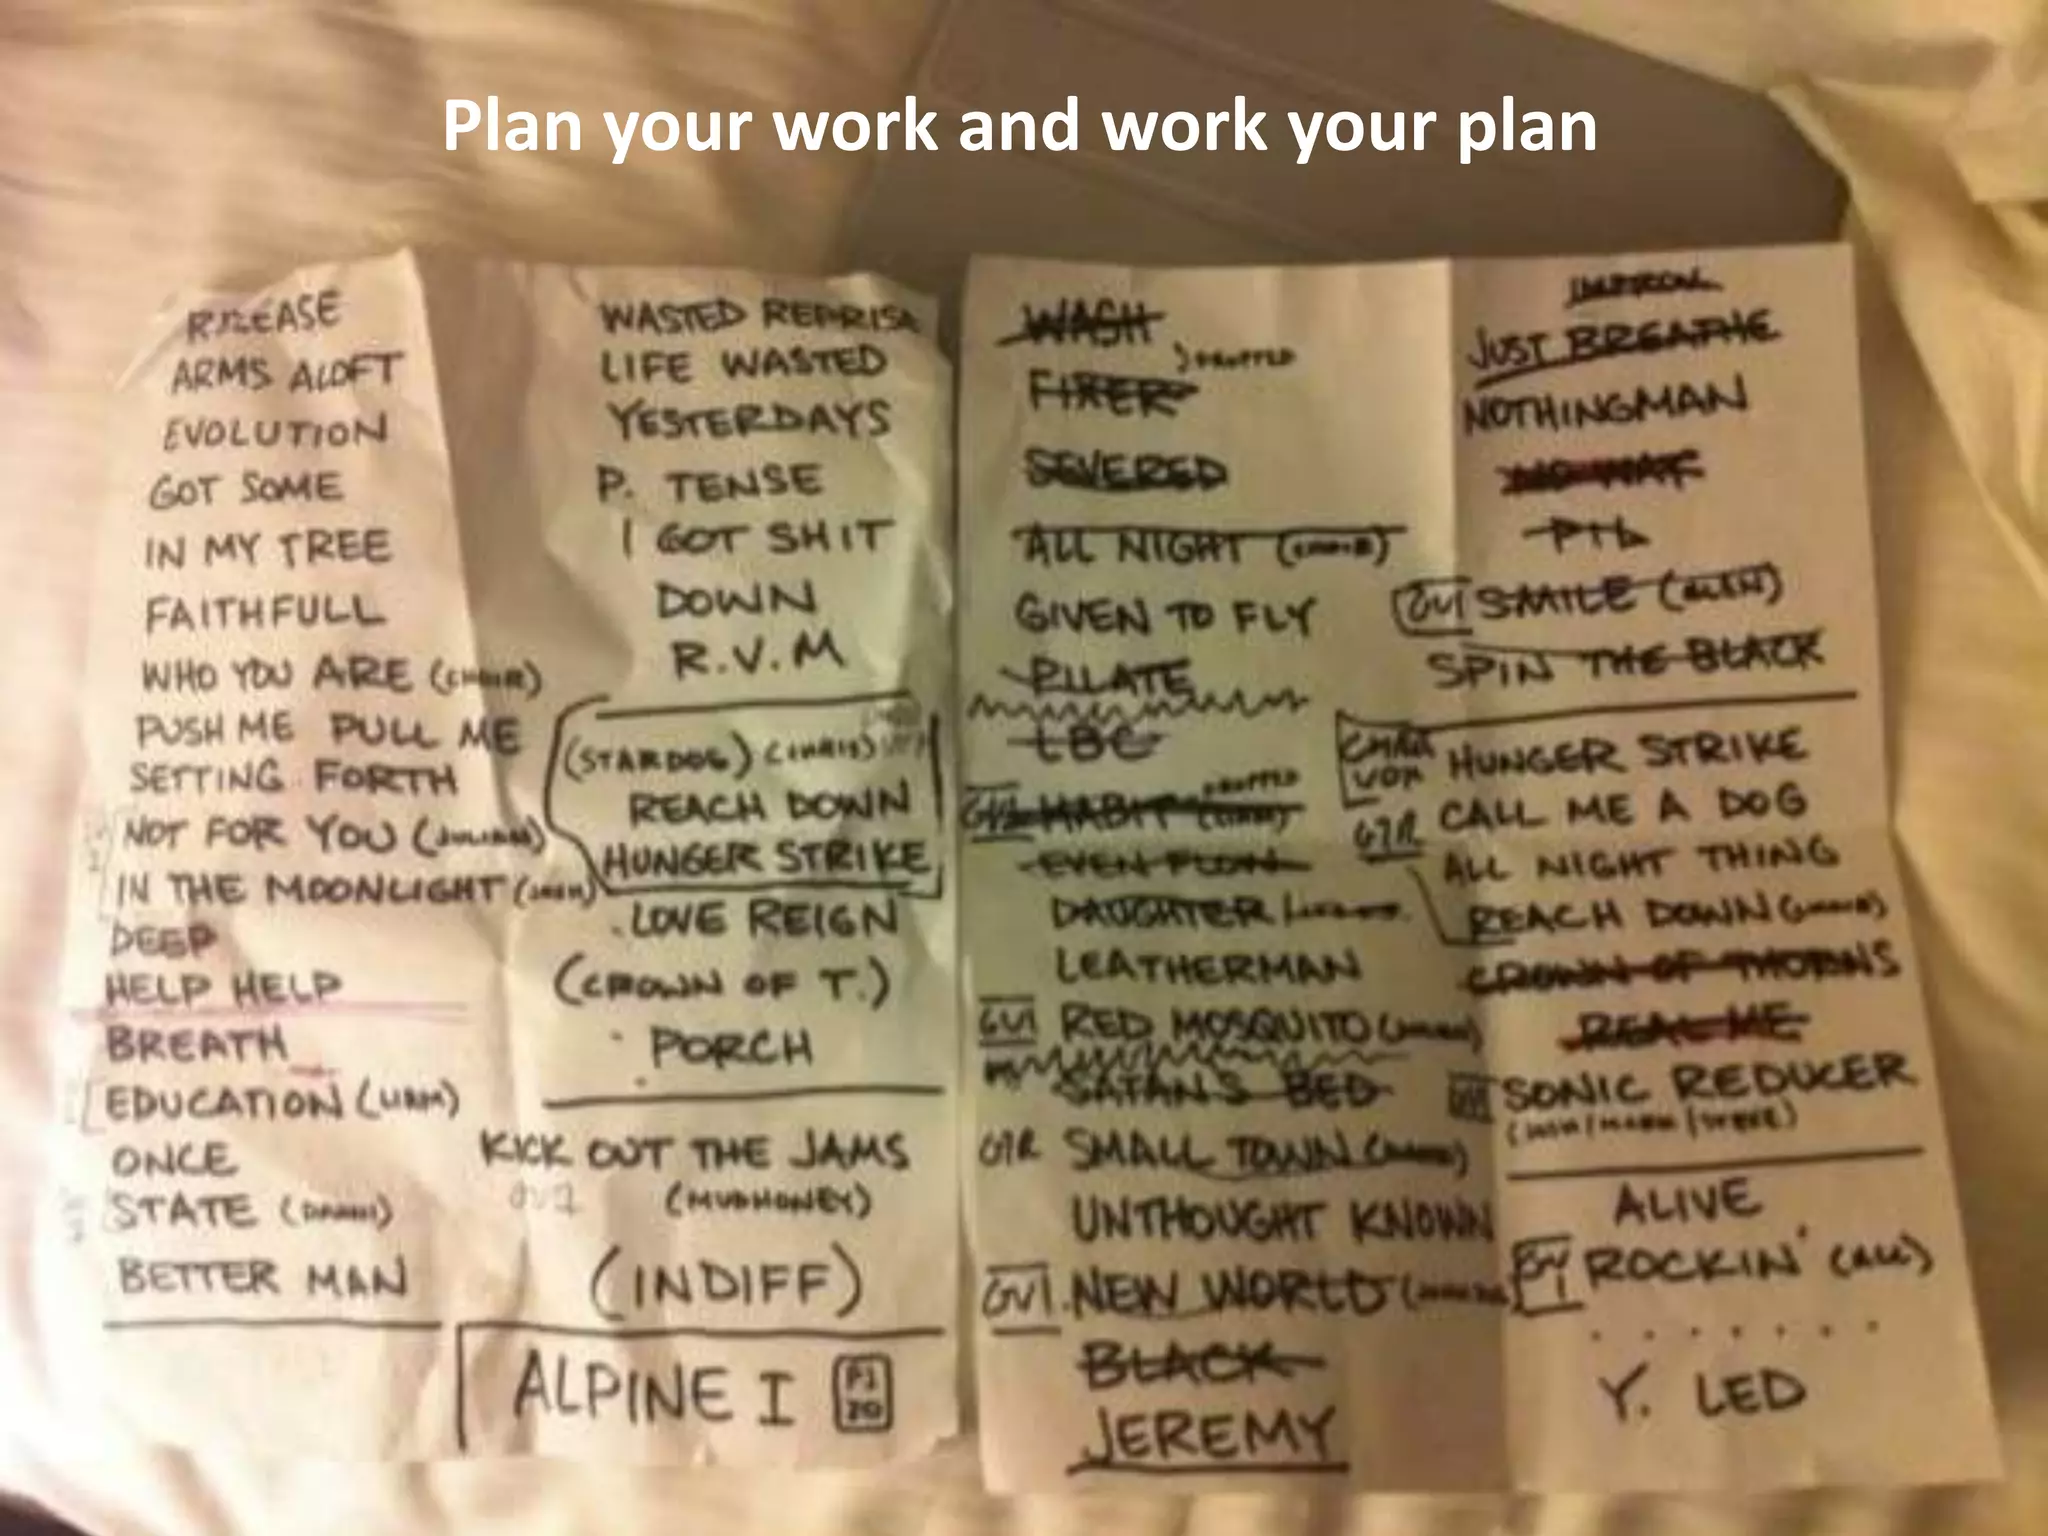 Plan your work and work your plan
RELEASE
ARMS ALOFT
EVOLUTION
GOT SOME
IN MY TREE
FAITHFULL
WHO YOU ARE (CHOIR)
PUSH ME PULL ME
SETTING FORTH
NOT FOR YOU (JULIAN)
IN THE MOONLIGHT (JOSH)
DEEP
HELP HELP
BREATH
EDUCATION (LIAM)
ONCE
STATE (DHANI)
BETTER MAN
WASTED REPRISE
LIFE WASTED
YESTERDAYS
P. TENSE
I GOT SHIT
DOWN
R.V.M
(STARDOG) (CHRIS)
REACH DOWN
HUNGER STRIKE
LOVE REIGN
(CROWN OF T.)
PORCH
KICK OUT THE JAMS
(MUDHONEY)
(INDIFF)
ALPINE I PJ 20
WASH
DROPPED
FIXER
SEVERED
ALL NIGHT (CHOIR)
GIVEN TO FLY
PILATE
LBC
DROPPED
HABIT (LIAM)
EVEN FLOW
DAUGHTER
LEATHERMAN
GUI RED MOSQUITO
SATANS BED
GTR SMALL TOWN
UNTHOUGHT KNOWN
GUI NEW WORLD
BLACK
JEREMY
JUST BREATHE
NOTHINGMAN
NO WAY
PTL
GUI SMILE (GLEN)
SPIN THE BLACK
CHRIS VOX HUNGER STRIKE
GTR CALL ME A DOG
ALL NIGHT THING
REACH DOWN (CHOIR)
CROWN OF THORNS
REAL ME
SONIC REDUCER
(JOSH/MARK/STEVE)
ALIVE
GUI ROCKIN' (ALL)
. . . . . . .
Y. LED